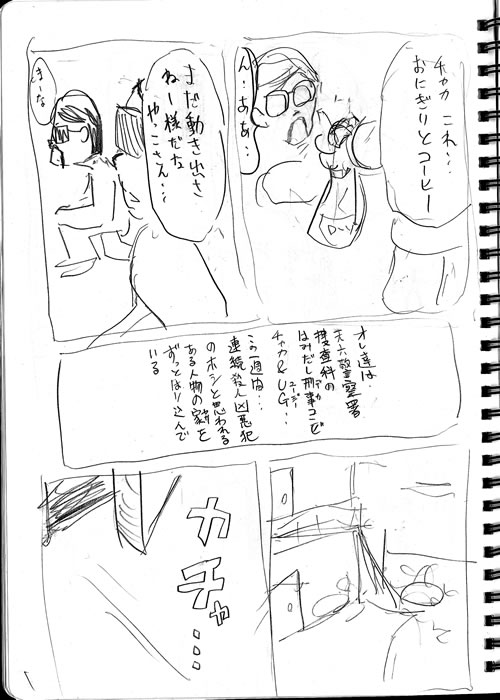 チャカ これ…
おにぎりとコーヒー
ん…ああ…
まだ動き出さ
ねー様だな
やこさん…
まーな
オレ達は
天六警察署
捜査科の
はみだし刑事コンビ
チャカ&UG…
ユージー
この一週間…
連続殺人凶悪犯
のホシと思われる
ある人物の家を
ずっとはり込んで
いる
カチャ…